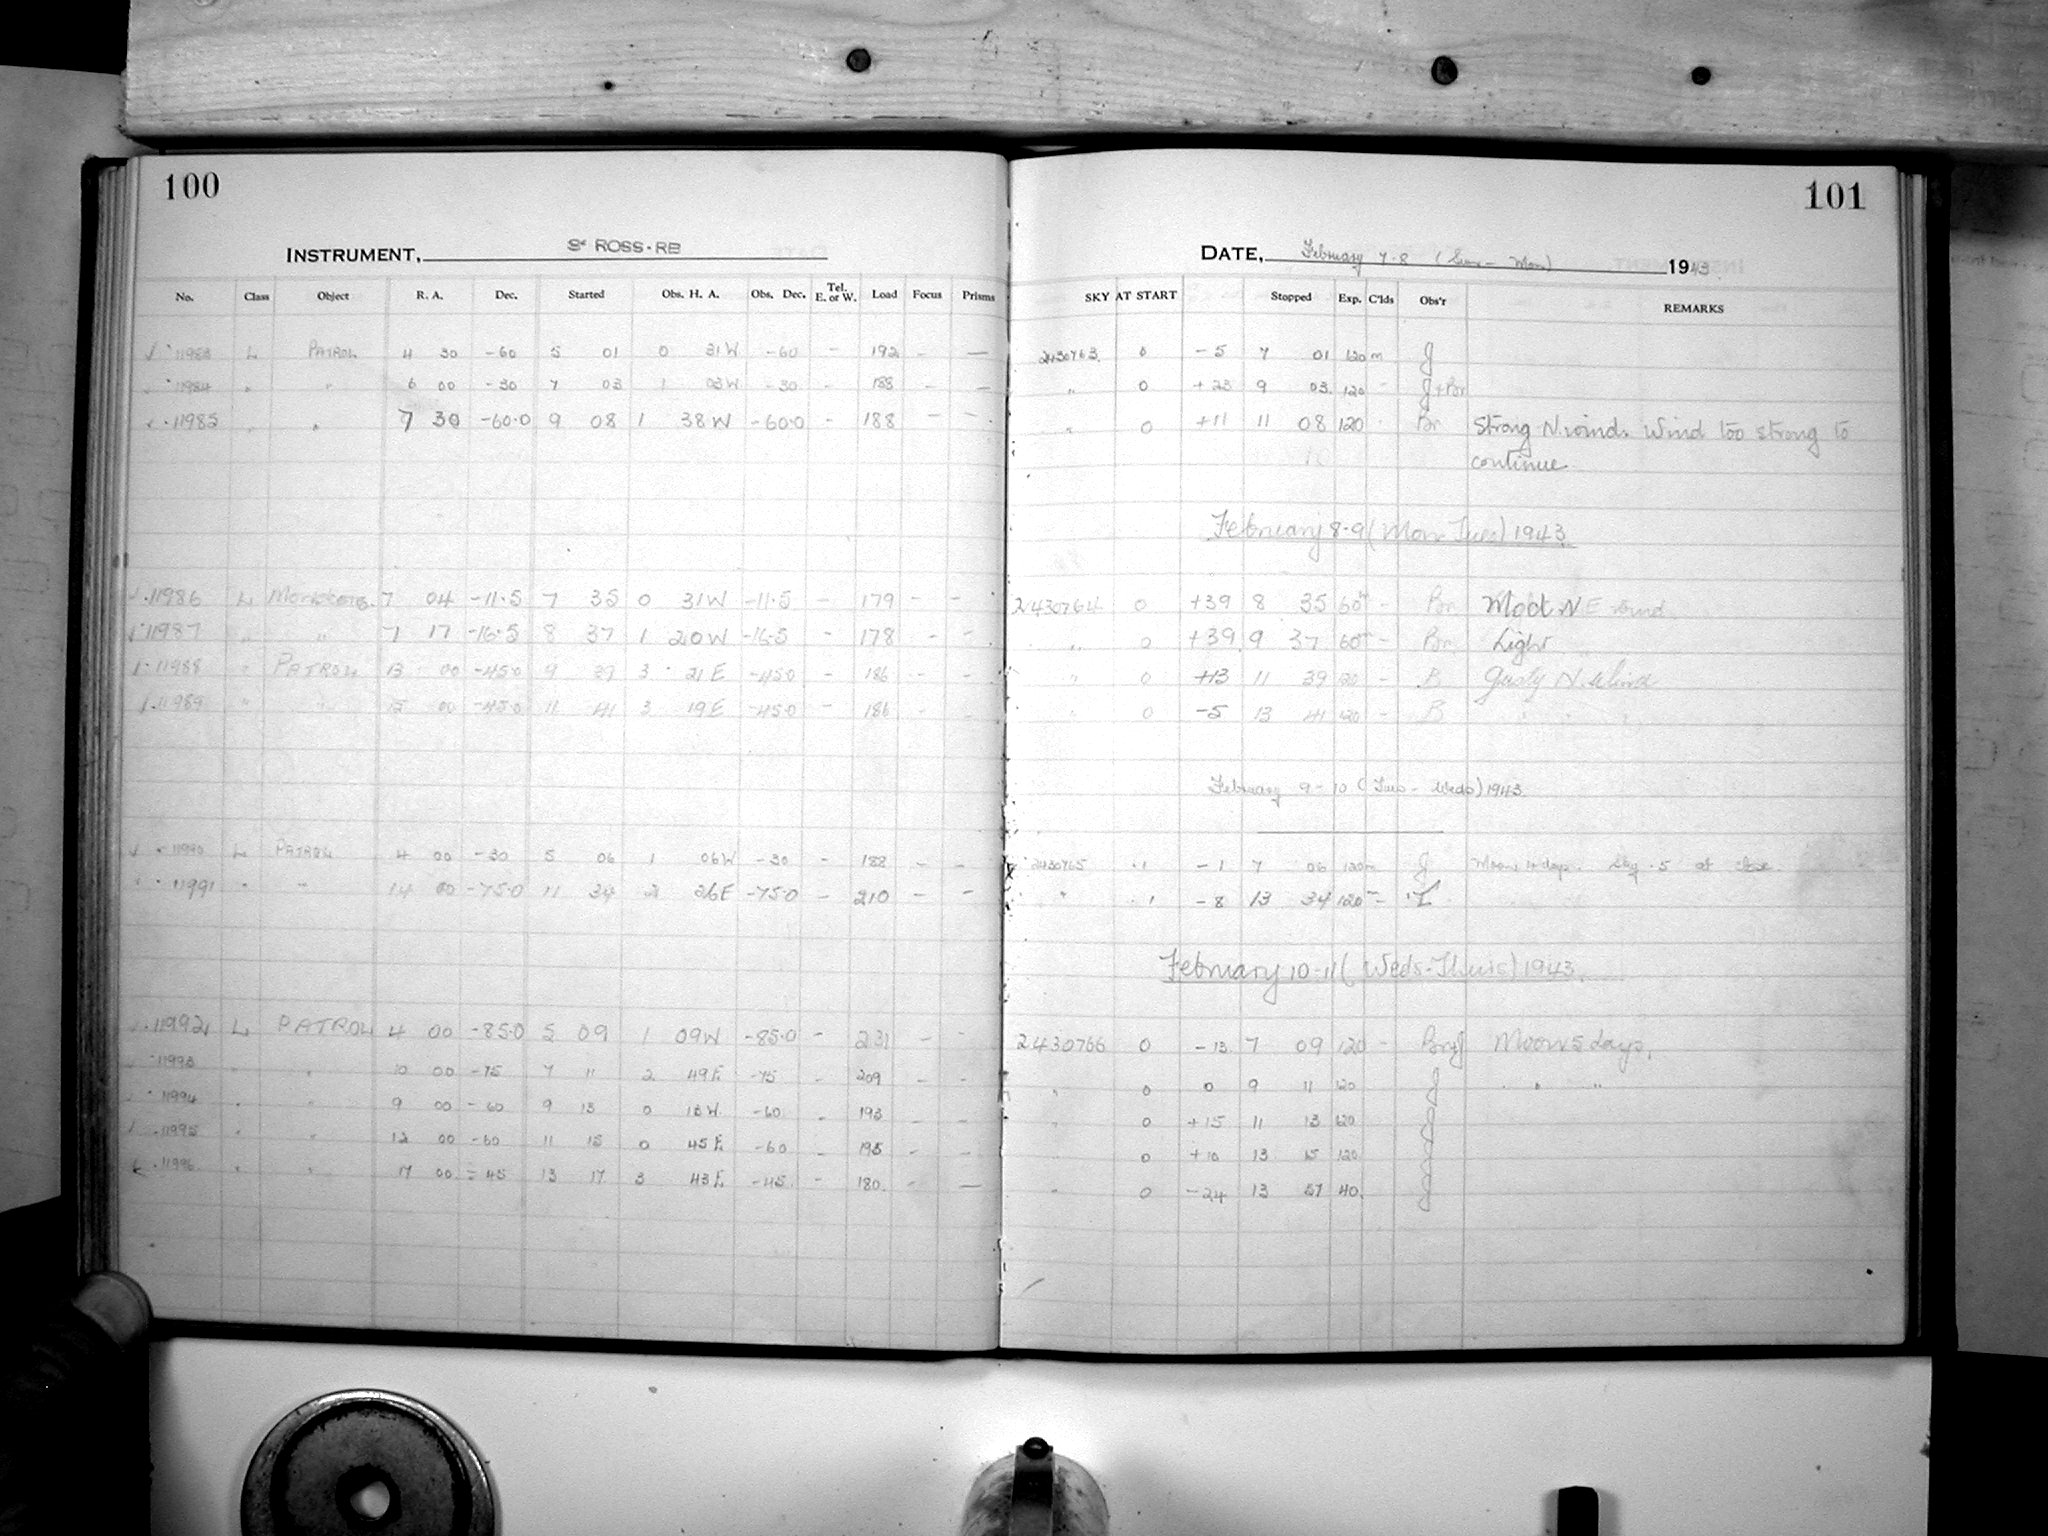 100
INSTRUMENT, ROSS-RB
No. Class Object R. A. Dec. Started Obs. H. A. Obs. Dec. Tel. E. or W. Load Focus Prisms
11983 L PATROL 4 30 -60 5 01 0 31W -60 - 192 - -
11984 " " 6 00 -30 7 03 1 03W -30 - 188 - -
11985 " " 7 30 -60.0 9 08 1 38W -60.0 - 188 - -
11986 L 7 04 -11.5 7 35 0 31W -11.5 - 179 - -
11987 " " 7 17 -16.5 8 37 1 20W -16.5 - 178 - -
11988 " PATROL 13 00 -45.0 9 39 3 21E -45.0 - 186 - -
11989 " " 15 00 -45.0 11 41 3 19E -45.0 - 186 - -
11990 L PATROL 4 00 -30 5 06 1 06W -30 - 188 - -
11991 " " 14 00 -75.0 11 34 2 26E -75.0 - 210 - -
11992 L PATROL 4 00 -85.0 5 09 1 09W -85.0 - 231 - -
11993 " " 10 00 -75 7 11 2 49E -75 - 209 - -
11994 " " 9 00 -60 9 13 0 13W -60 - 193 - -
11995 " " 12 00 -60 11 15 0 45E -60 - 195 - -
11996 " " 17 00 -45 13 17 3 43E -45 - 180 - -
101
DATE, February 7-8 (Sun - Mon) 1943
SKY AT START Stopped Exp. C'lds Obs'r REMARKS
2430763 0 -5 7 01 120m J
" 0 +23 9 03 120 - J+Br
" 0 +11 11 08 120 - Br Strong N. wind. Wind too strong to
continue
February 8-9 (Mon-Tues) 1943
2430764 0 +39 8 35 60m - Br Modt NE wind
" 0 +39 9 37 60m - Br Light " "
" 0 +13 11 39 120 - B Gusty N. Wind
" 0 -5 13 41 120 - B " " "
February 9-10 (Tues - Weds) 1943
2430765 .1 -1 7 06 120m J Moon 4 days. Sky .5 at close.
" .1 -8 13 34 120m -
February 10-11 (Weds-Thurs) 1943
2430766 0 -13 7 09 120 - Br+J Moon 5 days.
" 0 0 9 11 120 J " "
" 0 +15 11 13 120 J
0 +10 13 15 120 J
" 0 -24 13 57 40 J